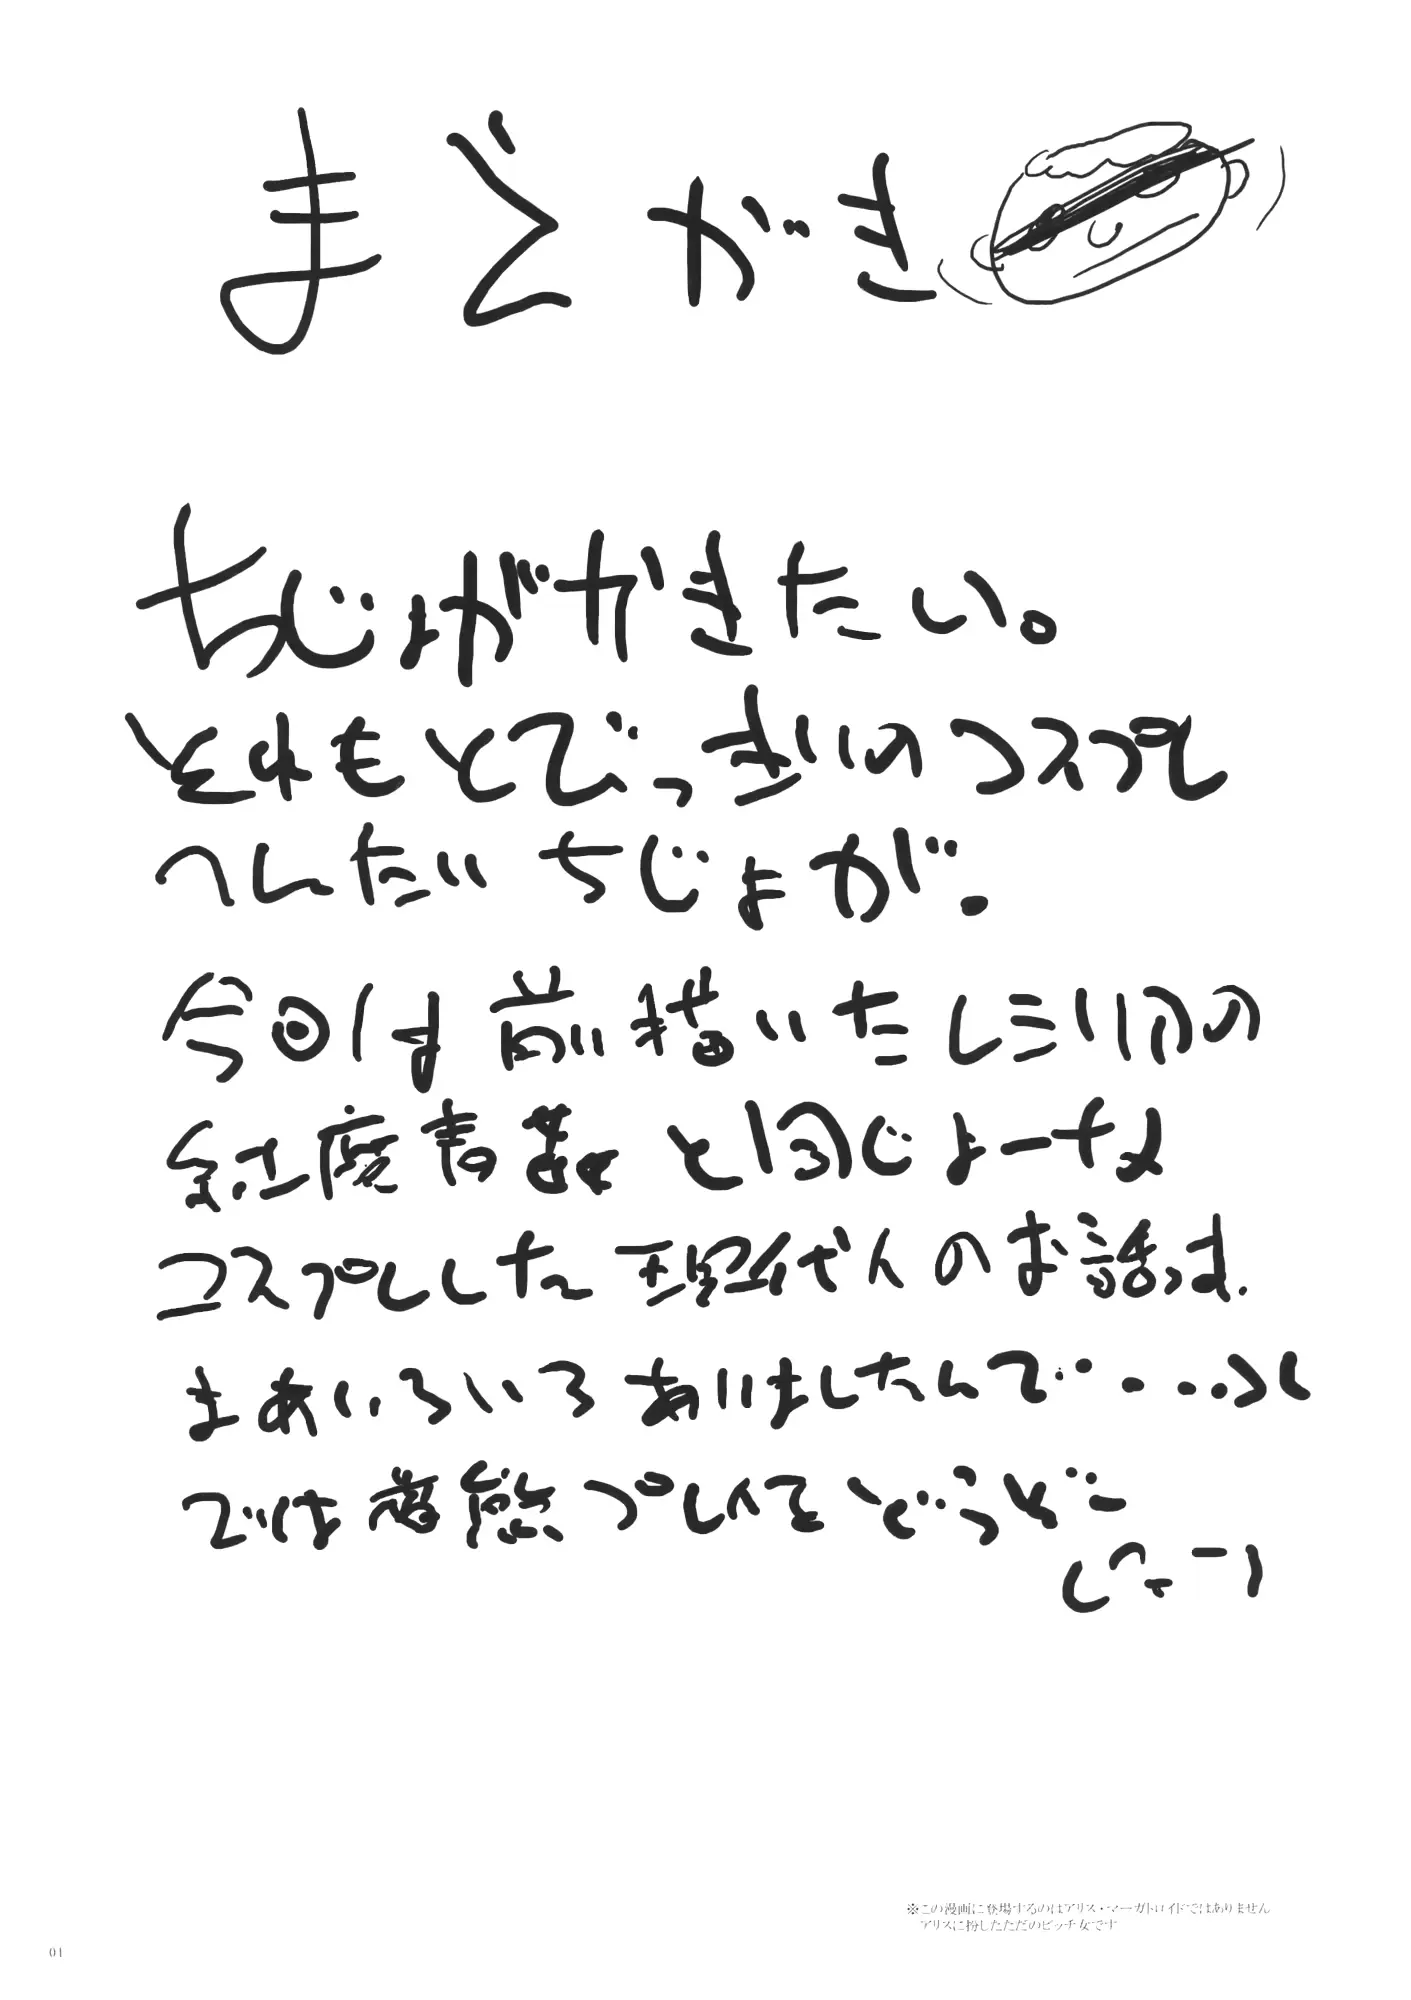 まえがき
ちじょがかきたい。
それもとびっきりのコスプレ
へんたいちじょが。
今回は前描いたレミリアの
と同じよーな
コスプレした現代人のお話っす.
まあいろいろありましたんで・・・・ふし
では変態プレイをどうぞー
※この漫画に登場するのはアリス・マーガトロイドではありません
アリスに扮したただのビッチ女です
01